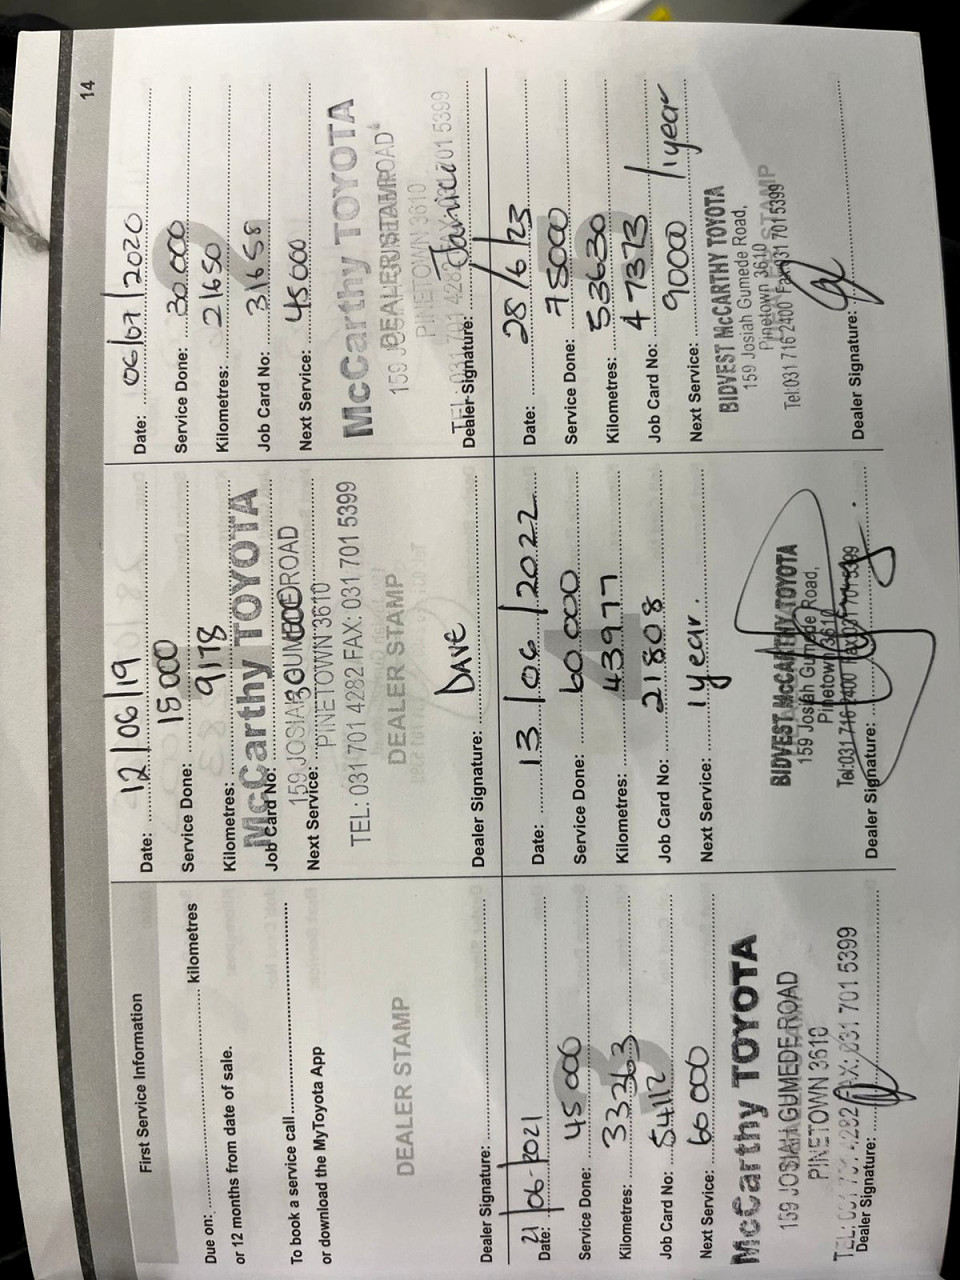 14
First Service Information
Due on: kilometres
or 12 months from date of sale.
To book a service call
or download the MyToyota App
DEALER STAMP
Dealer Signature:
Date: 12/06/19
Service Done: 15000
Kilometres: 9178
McCarthy TOYOTA
Job Card No:
159 JOSIAH GUMEDE ROAD
Next Service: 30 000
PINETOWN 3610
TEL: 031 701 4282 FAX: 031 701 5399
DEALER STAMP
Dave
Dealer Signature:
Date: 06/07/2020
Service Done: 30 000
Kilometres: 21650
Job Card No: 31658
Next Service: 45000
McCarthy TOYOTA
DEALER STAMP
159 JOSIAH GUMEDE ROAD
PINETOWN 3610
TEL: 031 701 4282 FAX: 031 701 5399
Dealer Signature:
3
Date: 21/06-2021
Service Done: 45 000
Kilometres: 33363
Job Card No: 54112
Next Service: 60 000
McCarthy TOYOTA
159 JOSIAH GUMEDE ROAD
PINETOWN 3610
TEL: 031 701 4282 FAX: 031 701 5399
Dealer Signature:
4
Date: 13/06/2022
Service Done: 60 000
Kilometres: 43977
Job Card No: 21808
Next Service: 1 year.
BIDVEST McCARTHY TOYOTA
159 Josiah Gumede Road,
Pinetown 3610
Tel:031 716 2400 Fax:031 701 5399
Dealer Signature:
Date: 28/6/23
Service Done: 75000
Kilometres: 53630
Job Card No: 47373
Next Service: 90000 / 1 year
BIDVEST McCARTHY TOYOTA
159 Josiah Gumede Road,
Pinetown 3610
DEALER STAMP
Tel:031 716 2400 Fax:031 701 5399
Dealer Signature: